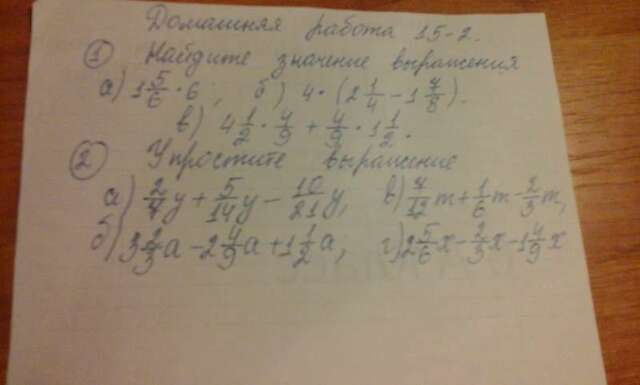 Домашняя работа 15-2.
① Найдите значение выражения
а) 1 5/6 · 6 ; б) 4 · (2 1/4 - 1 7/8).
в) 4 1/2 · 4/9 + 4/9 · 1 1/2.
② Упростите выражение
а) 2/7 y + 5/14 y - 10/21 y, в) 7/12 m + 1/6 m - 2/3 m,
б) 3 2/3 a - 2 4/9 a + 1 1/2 a, г) 2 5/6 x - 2/3 x - 1 4/9 x